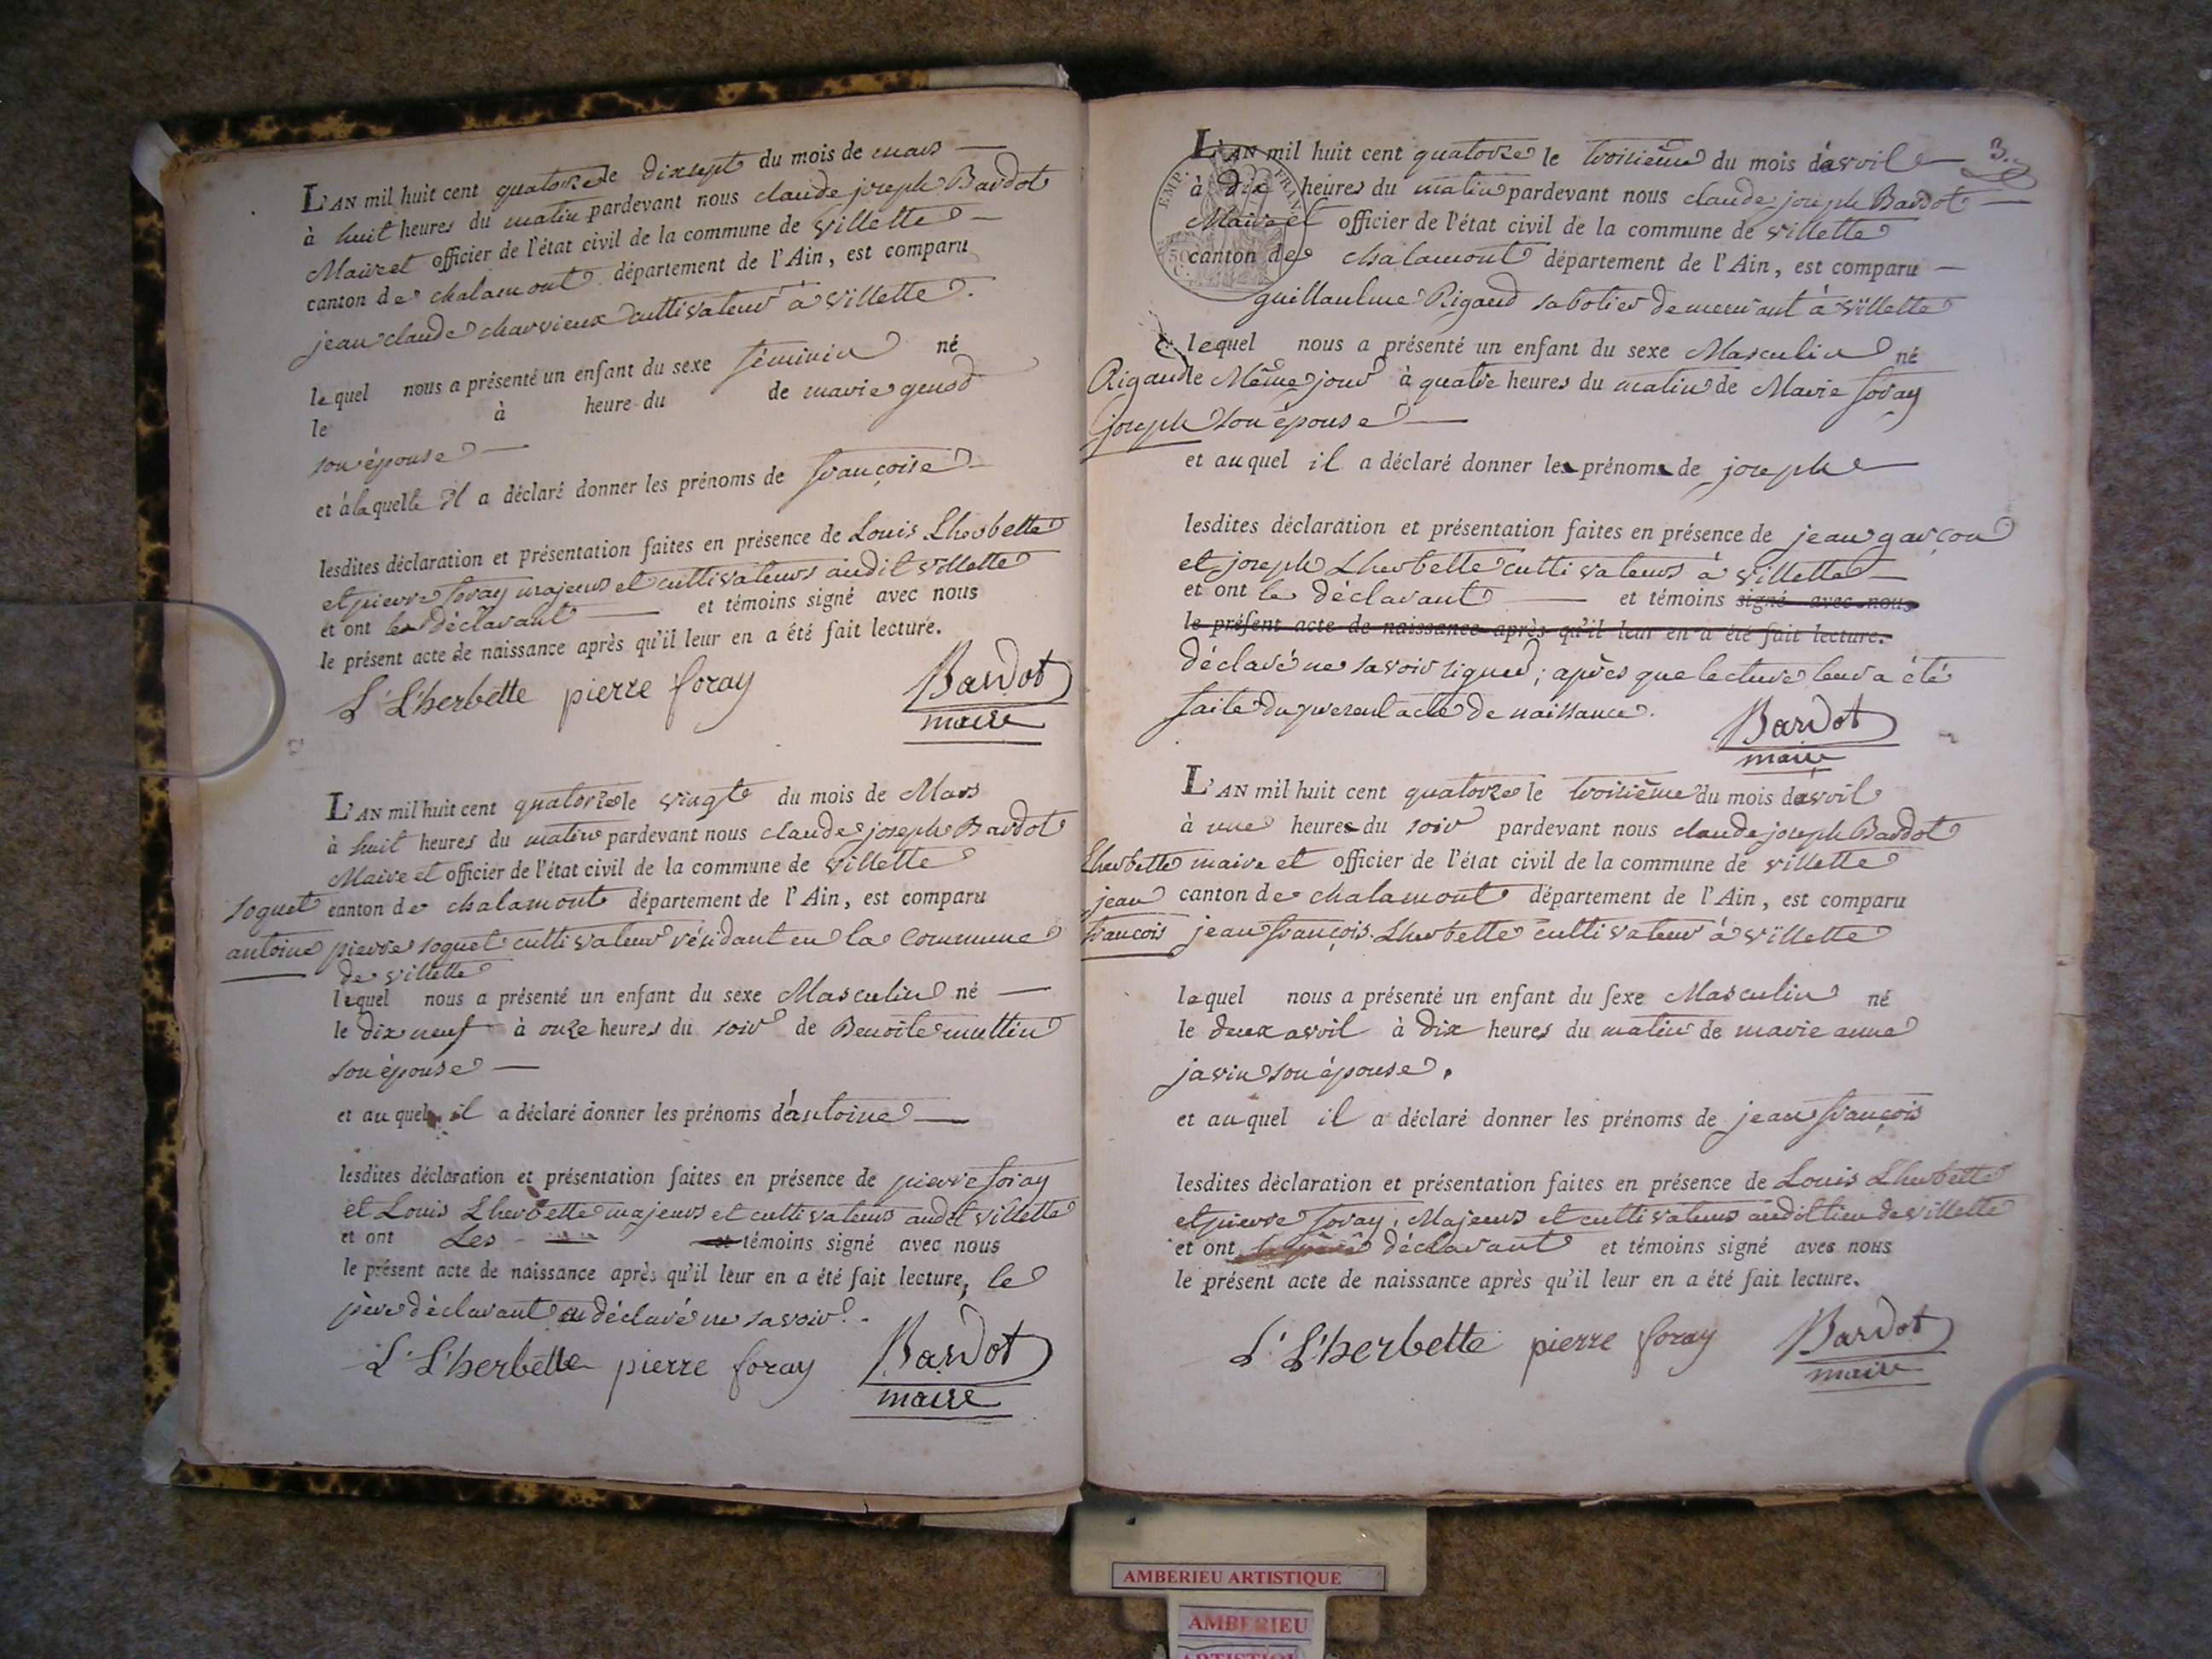 L'AN mil huit cent quatorze le dixsept du mois de mars
à huit heures du matin pardevant nous claude joseph Bardot
Maire et officier de l'état civil de la commune de villette
canton de chalamont département de l'Ain, est comparu
jean claude charvieux cultivateur à villette.
lequel nous a présenté un enfant du sexe féminin né
le à heure du de marie genod
son épouse
et à laquelle il a déclaré donner les prénoms de françoise
lesdites déclaration et présentation faites en présence de Louis Lherbette
et pierre foray majeurs et cultivateurs audit villette
et ont les déclarant et témoins signé avec nous
le présent acte de naissance après qu'il leur en a été fait lecture.
L. L'herbette pierre foray Bardot
maire
L'AN mil huit cent quatorze le vingt du mois de Mars
à huit heures du matin pardevant nous claude joseph Bardot
Maire et officier de l'état civil de la commune de villette
soquet canton de chalamont département de l'Ain, est comparu
antoine pierre soquet cultivateur résidant en la commune
de villette
lequel nous a présenté un enfant du sexe Masculin né
le dix neuf à onze heures du soir de Benoite
son épouse
et au quel il a déclaré donner les prénoms d'antoine
lesdites déclaration et présentation faites en présence de pierre foray
et Louis Lherbette majeurs et cultivateurs audit villette
et ont Les et témoins signé avec nous
le présent acte de naissance après qu'il leur en a été fait lecture, le
père déclarant a déclaré ne savoir.
L. L'herbette pierre foray Bardot
maire
3.
L'AN mil huit cent quatorze le troisième du mois d'avril
à dix heures du matin pardevant nous claude joseph Bardot
Maire et officier de l'état civil de la commune de villette
canton de chalamont département de l'Ain, est comparu
EMP. FRAN.
50 C.
guillaulme Rigaud sabotier demeurant à villette
lequel nous a présenté un enfant du sexe Masculin né
Rigaud le Même jour à quatre heures du matin de Marie foray
joseph son épouse
et auquel il a déclaré donner les prénoms de joseph
lesdites déclaration et présentation faites en présence de jean garçon
et joseph Lherbette cultivateurs à villette
et ont le déclarant et témoins signé avec nous
le présent acte de naissance après qu'il leur en a été fait lecture.
déclaré ne savoir signer; après que lecture leur a été
faite du present acte de naissance.
Bardot
maire
L'AN mil huit cent quatorze le troisième du mois davril
à une heures du soir pardevant nous claude joseph Bardot
Lherbette maire et officier de l'état civil de la commune de villette
jean canton de chalamont département de l'Ain, est comparu
francois jean françois Lherbette cultivateur à villette
lequel nous a présenté un enfant du sexe Masculin né
le deux avril à dix heures du matin de marie anne
javin son épouse.
et auquel il a déclaré donner les prénoms de jean françois
lesdites déclaration et présentation faites en présence de Louis Lherbette
et pierre foray, Majeurs et cultivateurs audit lieu de villette
et ont déclarant et témoins signé avec nous
le présent acte de naissance après qu'il leur en a été fait lecture.
L. L'herbette pierre foray Bardot
maire
AMBERIEU ARTISTIQUE
AMBERIEU
ARTISTIQUE